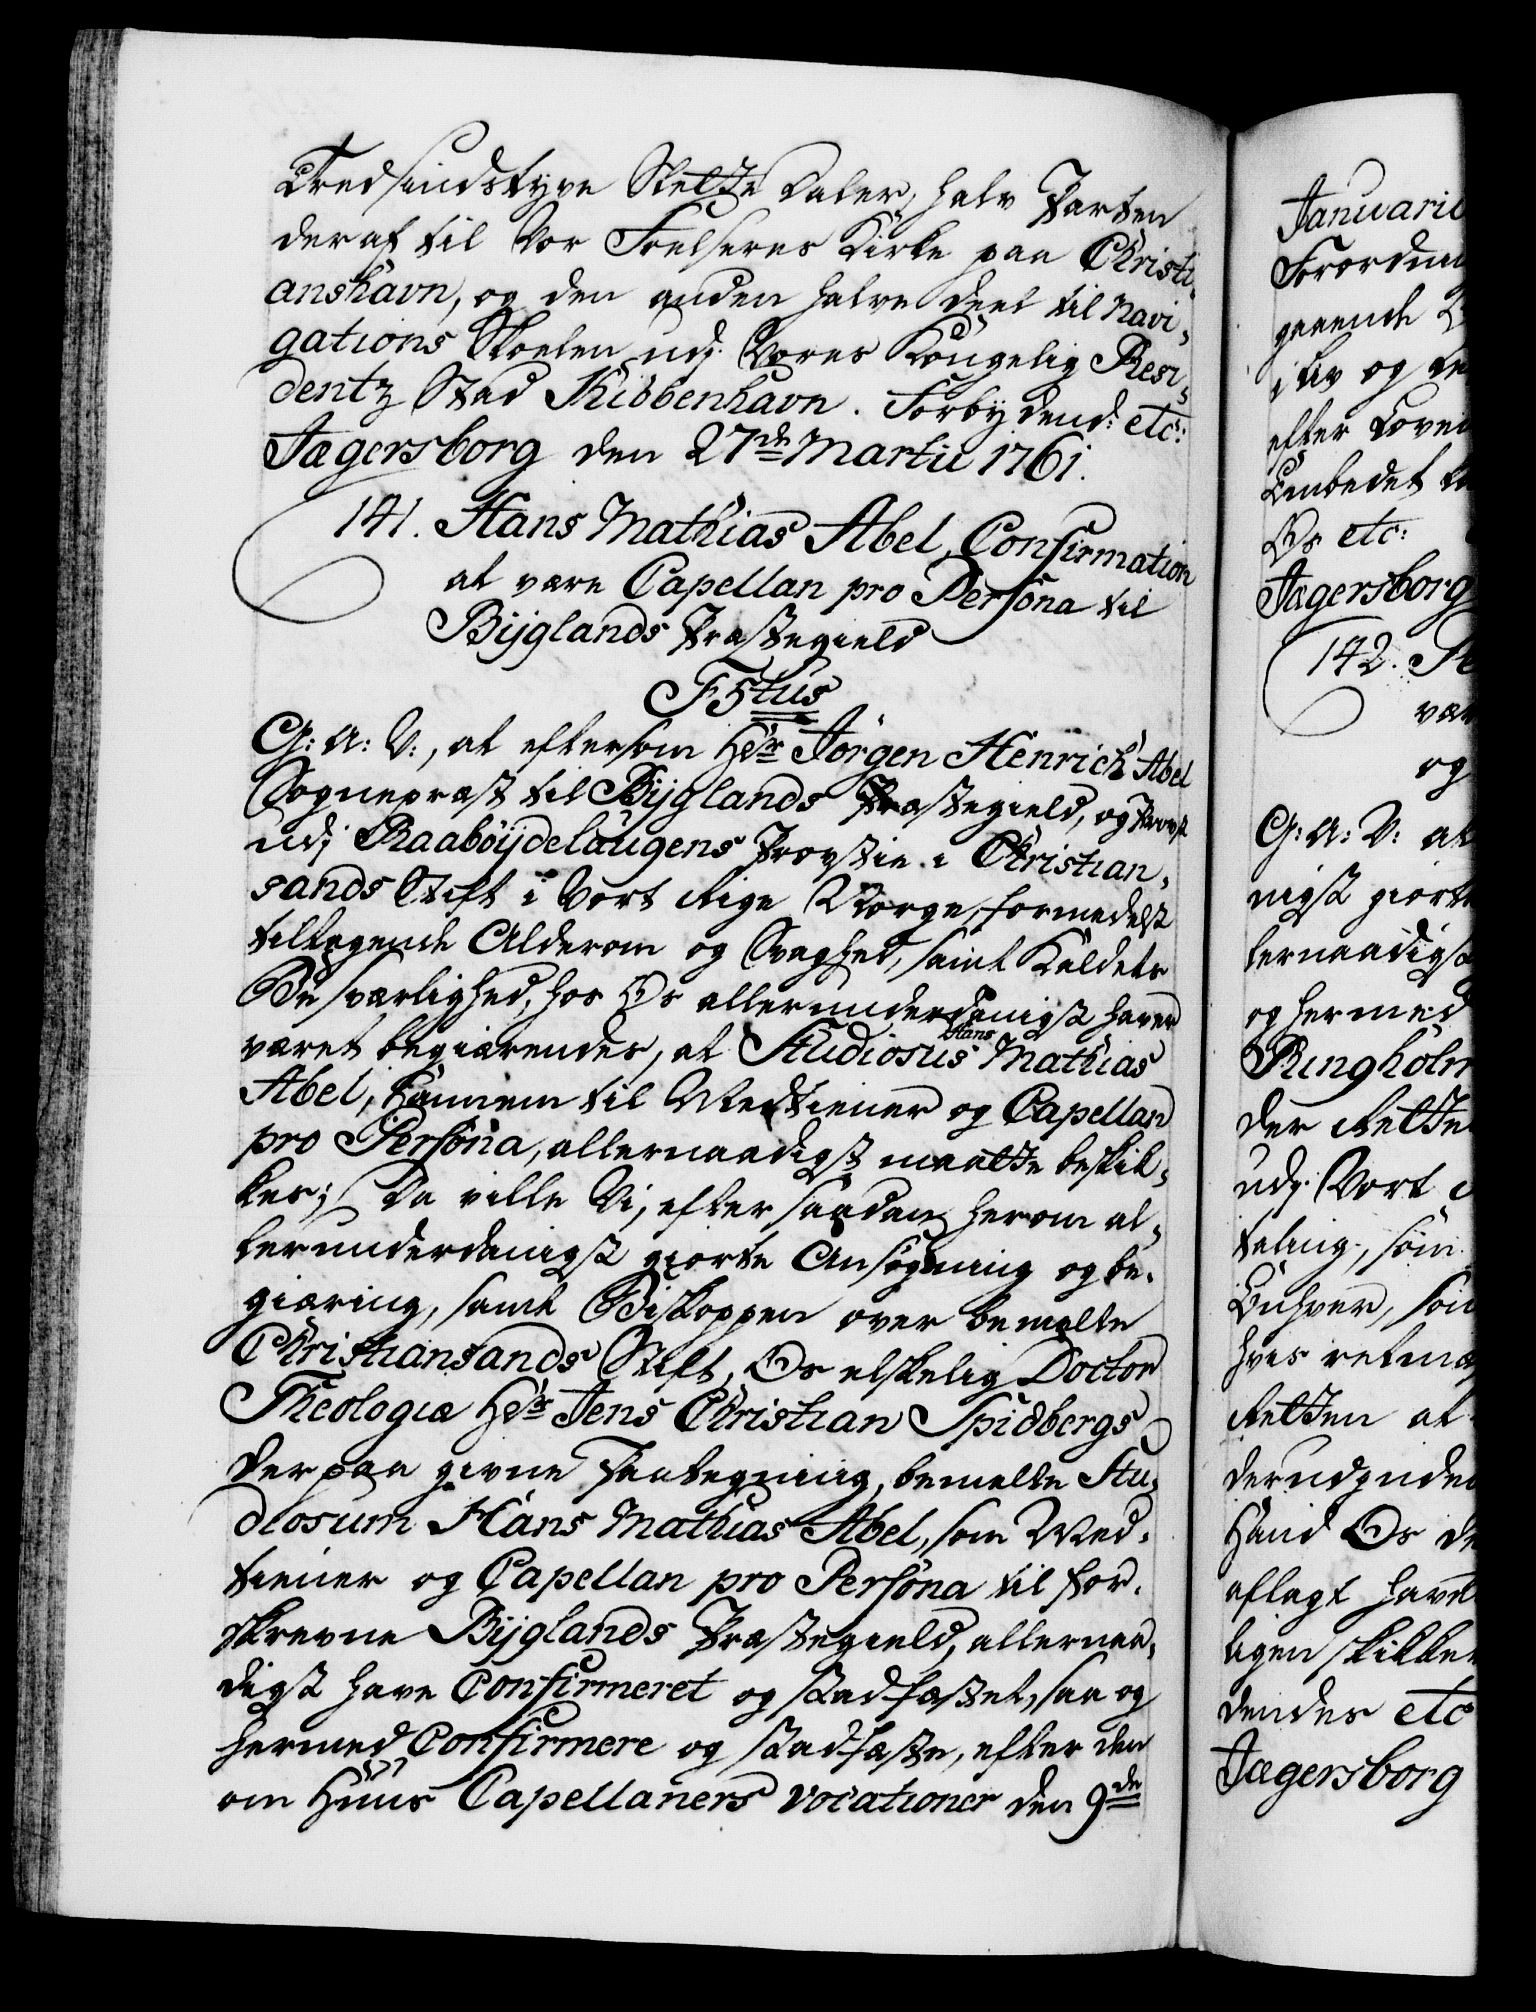 Tredsindstyve Slette Daler, halv Parten
deraf til Vor Frelseres Kirke paa Christi-
anshavn, og den anden halve deel til Navi-
gations Skolen udj Vores Kongelig Resi-
dentz Stad Kiöbenhavn. Forbydend: etc:
Jægersborg den 27de Martii 1761.
141. Hans Mathias Abel, Confirmation
at være Capellan pro Persona til
Bijglands Præstegield
F5tus
G: A: V:, at eftersom Hdr Jörgen Henrich Abel
Sognepræst til Bijglands Præstegield, og Provst
udj Raaböijdelaugens Provstie i Christian-
sands Stift i Vort Rige Norge, formedelst
tiltagende Alderom og Svaghed, samt Kaldets
Besværlighed, hos Os allerunderdanigst haver
været begiærendes, at Studiosus Hans Mathias
Abel, hannem til Medtiener og Capellan
pro Persona, allernaadigst maatte beskik-
kes; Da ville Vi, efter saadan herom al-
lerunderdanigst giorte Ansögning og be-
giæring, samt Biskoppen over bemelte
Christiansands Stift, Os elskelig Doctor
Theologiæ Hdr Jens Christian Spidbergs
derpaa givne Paategning, bemelte Stu-
diosum Hans Mathias Abel, som Med-
tiener og Capellan pro Persona til for-
skrevne Bijglands Præstegield, allernaa-
digst have Confirmeret og stadfæstet, saa og
hermed Confirmere og stadfæste, efter den
om Huus Capellaners Vocationer den 9de
Januarii
Forordn
gaaende
i liv og le
efter Loven
Embedet
Os etc:
Jægersborg
142.
vær
og
G: A: V: at
nigst giort
lernaadigst
og hermed
Ringholm
der Rette
udj Vort
taling, som
Enhver, som
hvis retmæ
Retten at
derudinden
Haand Os de
aflagt have
ligen skikke
dendes etc
Jægersborg